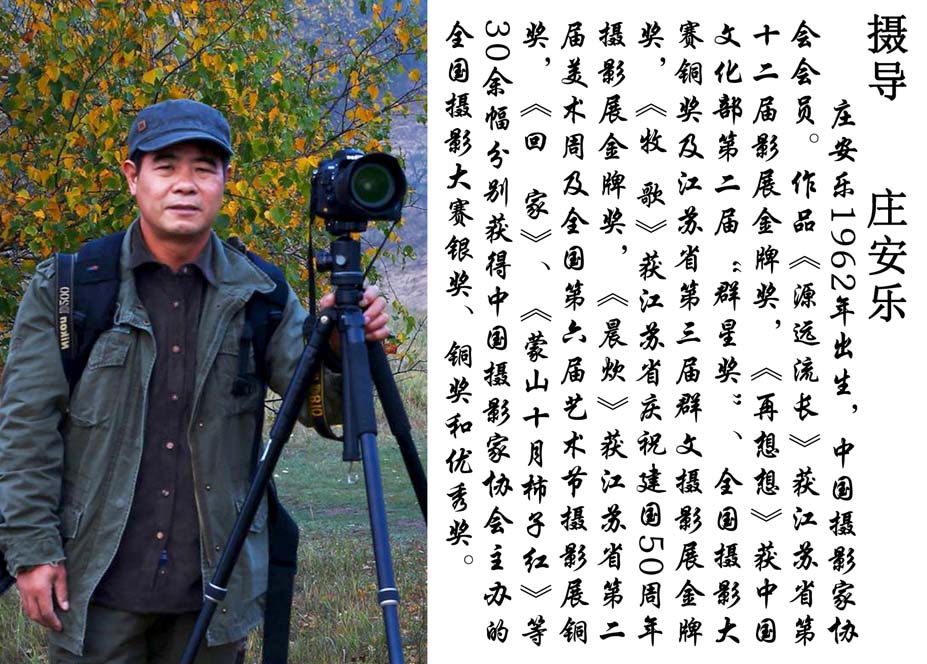 摄导 庄安乐
庄安乐1962年出生，中国摄影家协
会会员。作品《源远流长》获江苏省第
十二届影展金牌奖，《再想想》获中国
文化部第二届“群星奖”、全国摄影大
赛铜奖及江苏省第三届群文摄影展金牌
奖，《牧 歌》获江苏省庆祝建国50周年
摄影展金牌奖，《晨炊》获江苏省第二
届美术周及全国第六届艺术节摄影展铜
奖，《回 家》、《蒙山十月柿子红》等
30余幅分别获得中国摄影家协会主办的
全国摄影大赛银奖、铜奖和优秀奖。
Nikon D200
D810